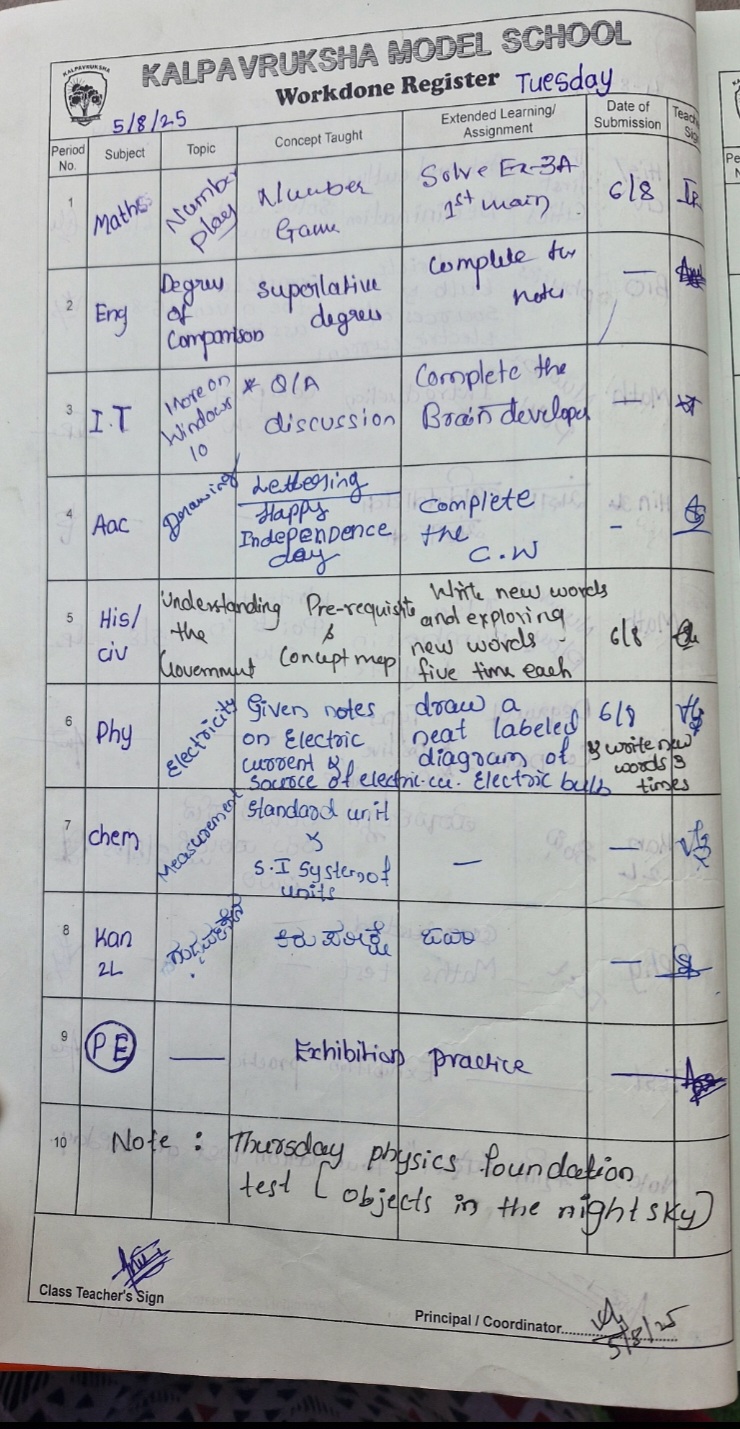 KALPAVRUKSHA
KALPAVRUKSHA MODEL SCHOOL
Workdone Register Tuesday
5/8/25
Period No.
Subject
Topic
Concept Taught
Extended Learning/ Assignment
Date of Submission
1
Maths
Number play
Number Game
Solve Ex-3A
1st main
6/8
2
Eng
Degree of Comparison
Superlative degree
Complete the notes
—
3
I.T
More on Windows 10
* Q/A discussion
Complete the Brain developer
—
4
Aac
Drawing
Lettering
Happy Independence day
Complete the C.W
-
5
His/ civ
Understanding the Government
Pre-requisite & Concept map
Write new words and exploring new words - five time each
6/8
6
Phy
Electricity
Given notes on Electric current & Source of electric-cu.
draw a neat labeled diagram of Electric bulb
6/8
& write new words 3 times
7
chem
Measurement
Standard unit & S.I System of units
—
—
8
Kan 2L
ಕಿರು ಪರೀಕ್ಷೆ
ಓದಿರಿ
—
9
PE
—
Exhibition practice
—
10
Note : Thursday physics foundation
test (objects in the night sky)
Class Teacher's Sign
Principal / Coordinator
5/8/25